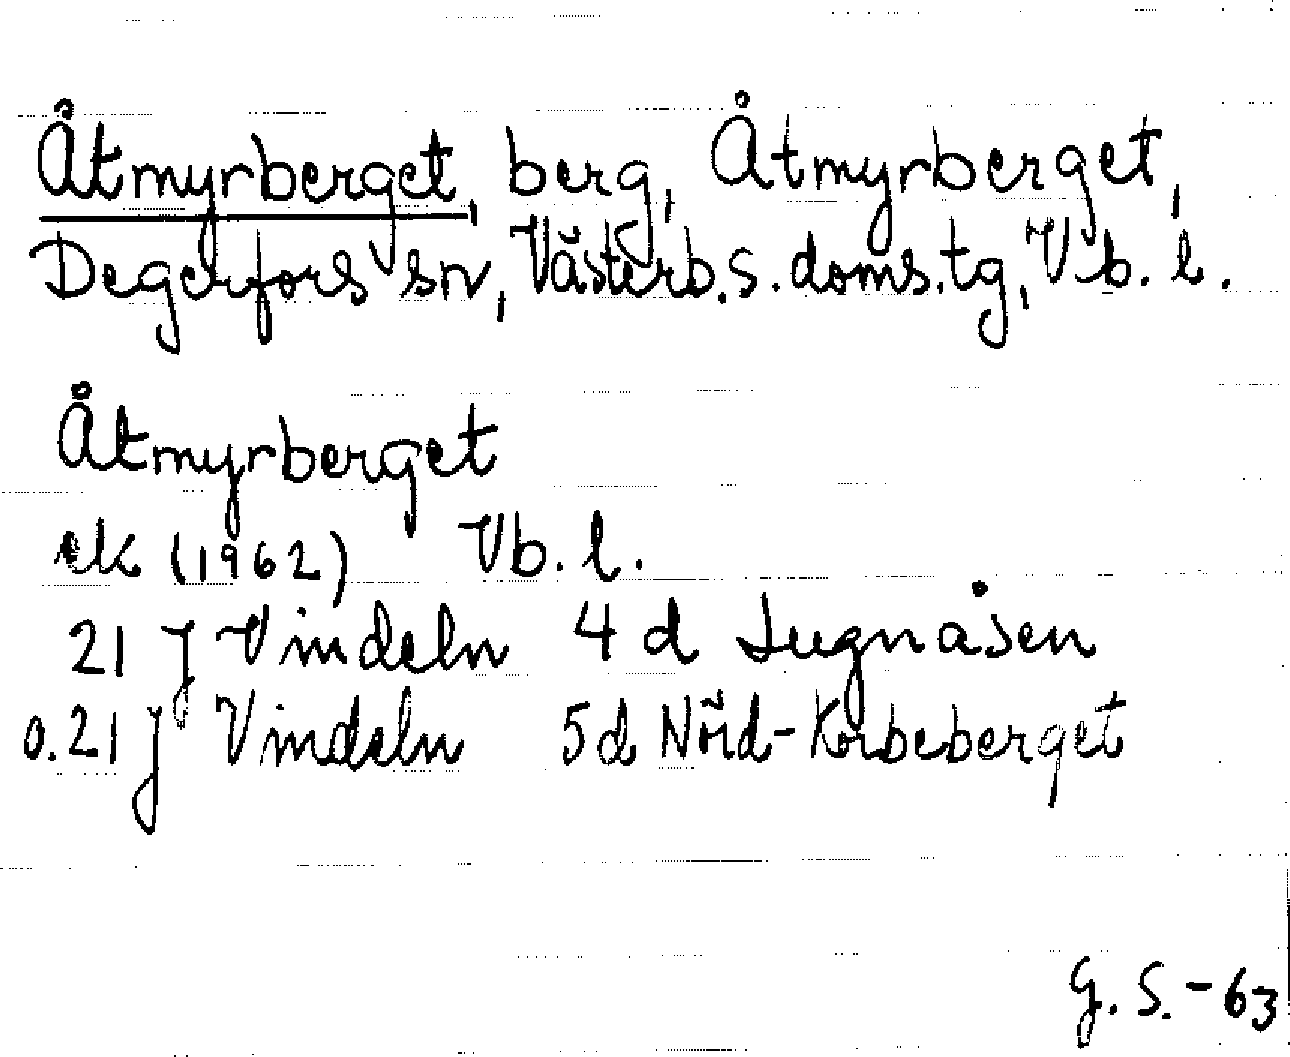 Åtmyrberget, berg, Åtmyrberget,
Degerfors sn, Västerb.s. doms.tg, Vb. l.
Åtmyrberget
ek (1962) Vb. l.
21 J Vindeln 4 d Lugnåsen
o. 21 J Vindeln 5d Nörd-Korbeberget
G. S. - 63